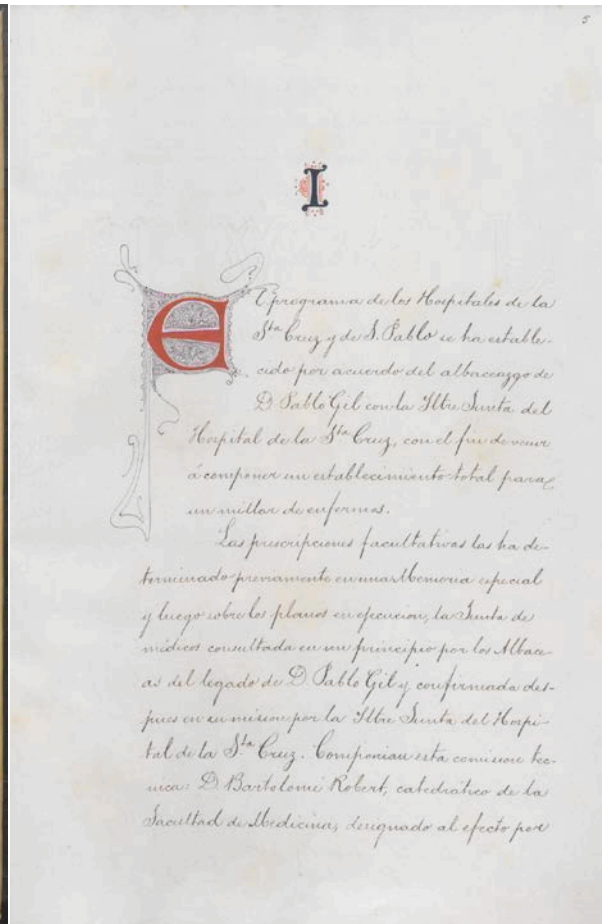 5
I
El programa de los Hospitales de la
Sta Cruz y de S. Pablo se ha estable-
cido por acuerdo del albaceazgo de
D. Pablo Gil con la Iltre Junta del
Hospital de la Sta Cruz, con el fin de venir
á componer un establecimiento total para
un millar de enfermos.
Las prescripciones facultativas las ha de-
terminado previamente en una Memoria especial
y luego sobre los planos en ejecucion, la Junta de
médicos consultada en un principio por los Albace-
as del legado de D. Pablo Gil y confirmada des-
pues en su mision por la Iltre Junta del Hospi-
tal de la Sta Cruz. Componian esta comision tec-
nica: D. Bartolomé Robert, catedrático de la
Facultad de Medicina, designado al efecto por